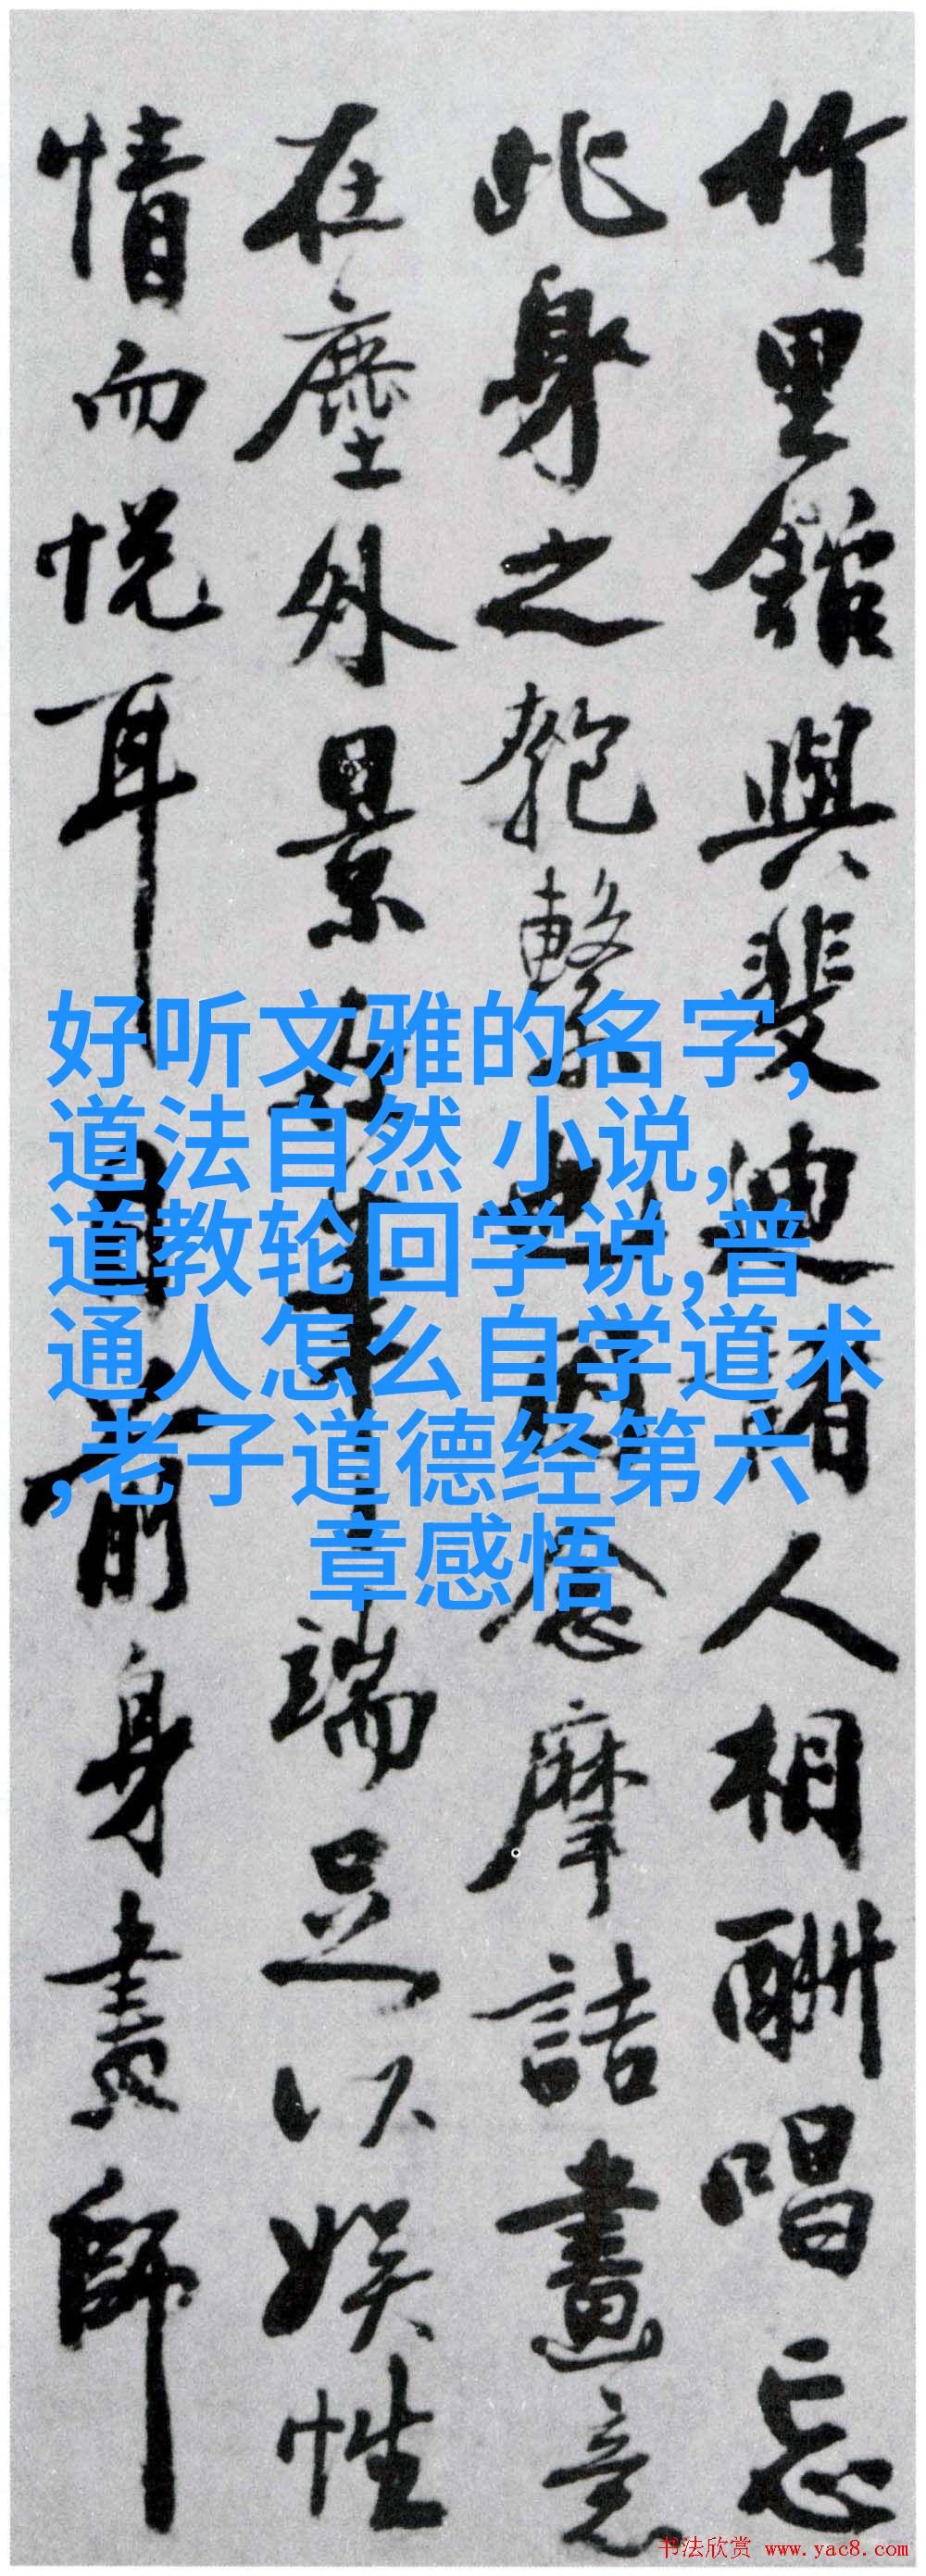 竹里館與斐迪諸人相酬唱忘
此身之匏繫也因念摩詰畫意
在塵外景筆端足以娛性
情而悅耳目前身畫師
好听文雅的名字,
道法自然 小说,
道教轮回学说,普
通人怎么自学道术
,老子道德经第六
章感悟
书法欣赏 www.yac8.com